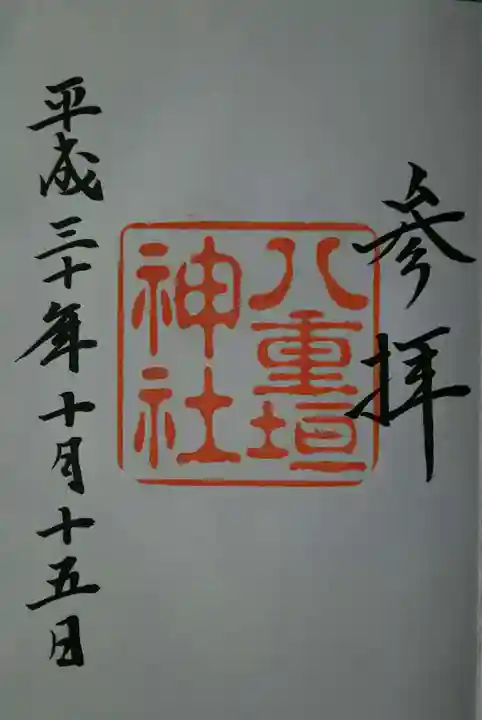 参拝
八重垣
神社
平成三十年十月十五日